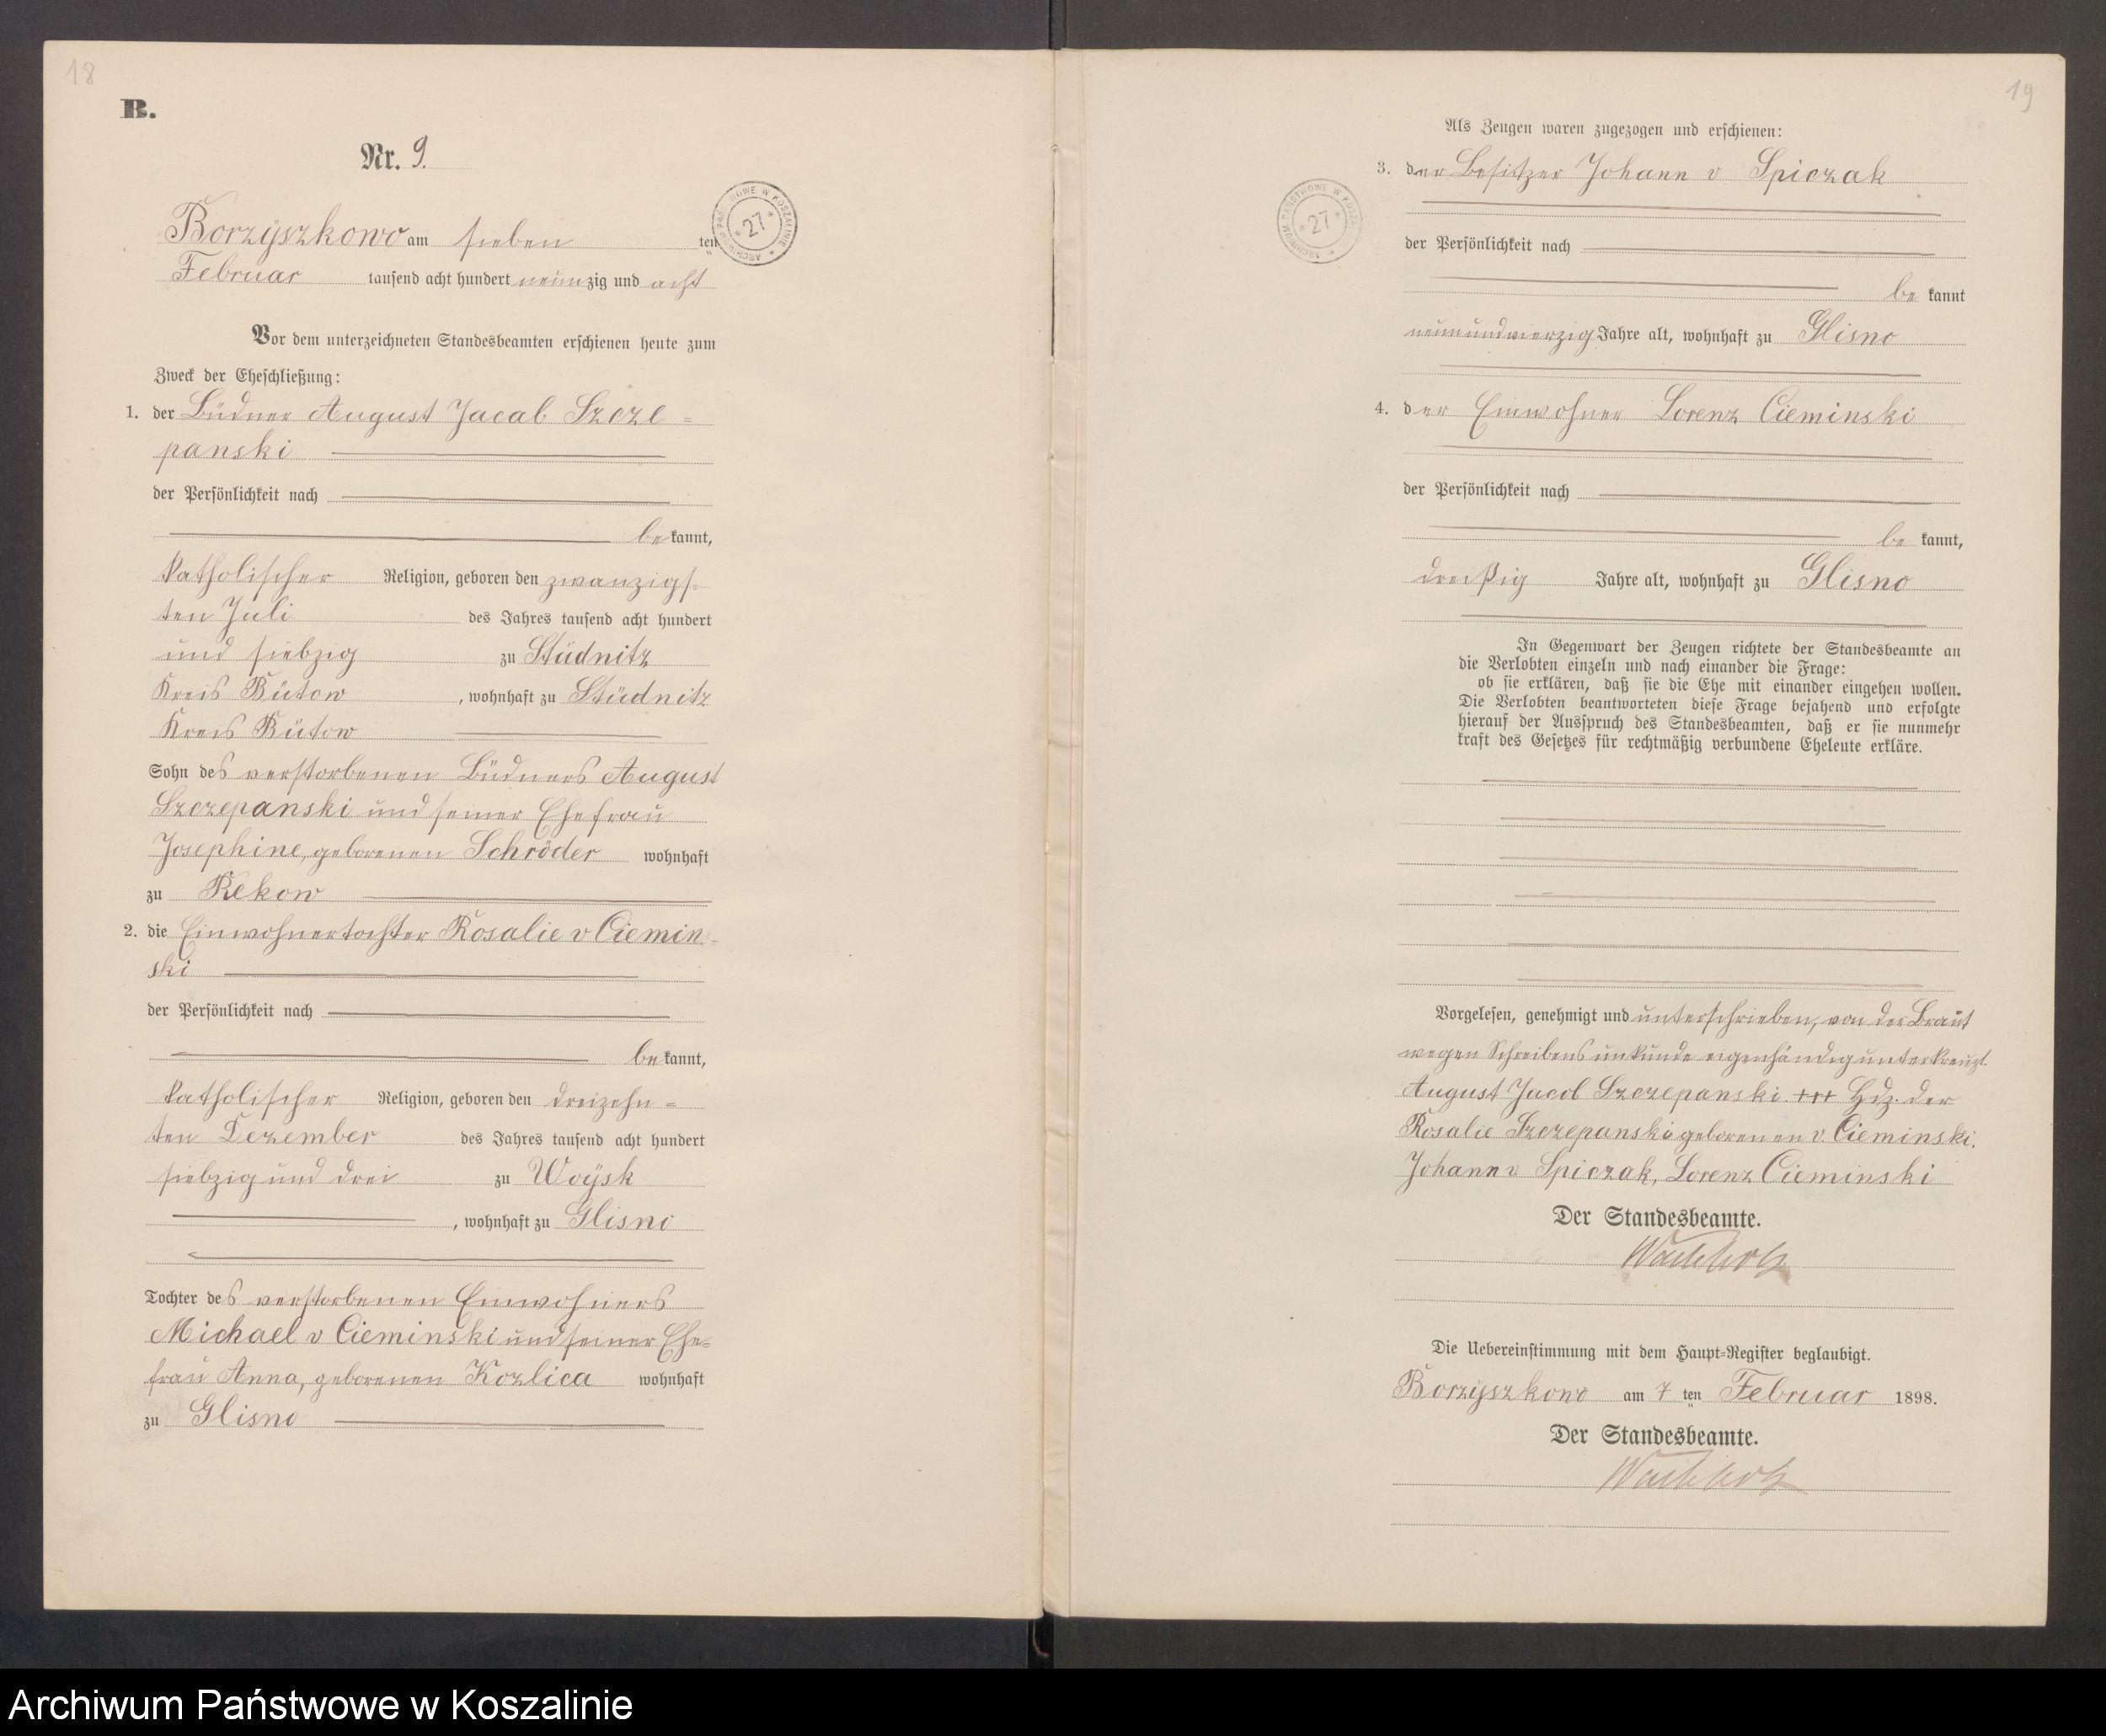 18
B.
Nr. 9.
Borzyszkowo am sieben ten
Februar tausend acht hundert neunzig und acht
Vor dem unterzeichneten Standesbeamten erschienen heute zum
Zweck der Eheschließung:
1. der Büdner August Jacob Szcze=
panski
der Persönlichkeit nach
be kannt,
katholischer Religion, geboren den zwanzigs-
ten Juli des Jahres tausend acht hundert
und siebzig zu Studnitz
Kreis Bütow, wohnhaft zu Studnitz
Kreis Bütow
Sohn des verstorbenen Büdners August
Szczepanski und seiner Ehefrau
Josephine, geborenen Schröder wohnhaft
zu Rekow
2. die Einwohnertochter Rosalie v Ciemin=
ski
der Persönlichkeit nach
be kannt,
katholischer Religion, geboren den dreizehn=
ten Dezember des Jahres tausend acht hundert
siebzig und drei zu Woysk
, wohnhaft zu Glisno
Tochter des verstorbenen Einwohners
Michael v Cieminski und seiner Ehe=
frau Anna, geborenen Kozlica wohnhaft
zu Glisno
ARCHIWUM PAŃSTWOWE W KOSZALINIE * 27 *
19
Als Zeugen waren zugezogen und erschienen:
3. der Besitzer Johann v Spiczak
der Persönlichkeit nach
be kannt
neunundvierzig Jahre alt, wohnhaft zu Glisno
4. der Einwohner Lorenz Cieminski
der Persönlichkeit nach
be kannt,
dreißig Jahre alt, wohnhaft zu Glisno
In Gegenwart der Zeugen richtete der Standesbeamte an
die Verlobten einzeln und nach einander die Frage:
ob sie erklären, daß sie die Ehe mit einander eingehen wollen.
Die Verlobten beantworteten diese Frage bejahend und erfolgte
hierauf der Ausspruch des Standesbeamten, daß er sie nunmehr
kraft des Gesetzes für rechtmäßig verbundene Eheleute erkläre.
Vorgelesen, genehmigt und unterschrieben, von der Braut
wegen Schreibensunkunde eigenhändig unterkreuzt.
August Jacob Szczepanski. +++ Hdz. der
Rosalie Szczepanski geborenen v. Cieminski.
Johann v Spiczak, Lorenz Cieminski
Der Standesbeamte.
Wachholz
Die Uebereinstimmung mit dem Haupt=Register beglaubigt.
Borzyszkowo am 7 ten Februar 1898.
Der Standesbeamte.
Wachholz
ARCHIWUM PAŃSTWOWE W KOSZALINIE * 27 *
Archiwum Państwowe w Koszalinie